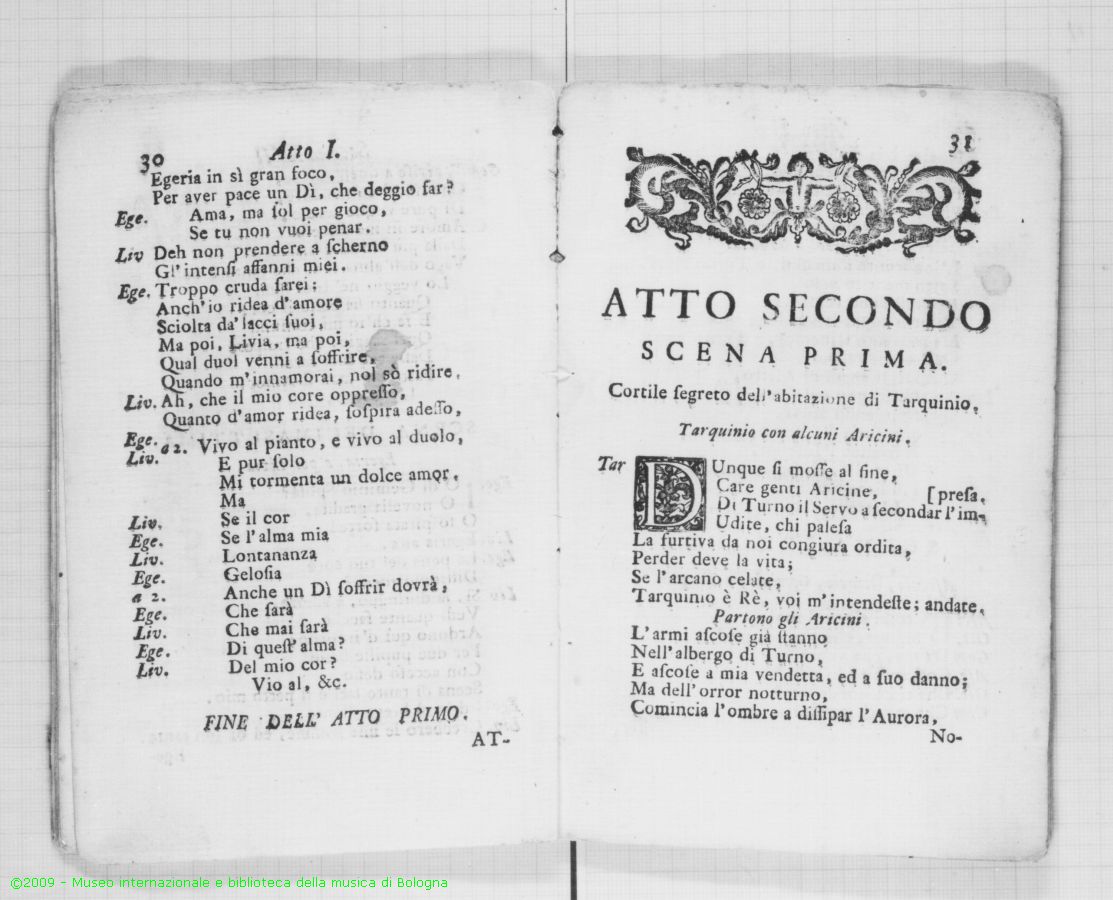 30 Atto I.
Egeria in sì gran foco,
Per aver pace un Dì, che deggio far?
Ege. Ama, ma ſol per gioco,
Se tu non vuoi penar.
Liv Deh non prendere a ſcherno
Gl'intenſi affanni miei.
Ege. Troppo cruda ſarei:
Anch'io ridea d'amore
Sciolta da' lacci ſuoi,
Ma poi, Livia, ma poi,
Qual duol venni a ſoffrire,
Quando m'innamorai, nol sò ridire.
Liv. Ah, che il mio core oppreſſo,
Quanto d'amor ridea, ſoſpira adeſſo,
Ege. Liv. a 2. Vivo al pianto, e vivo al duolo,
E pur ſolo
Mi tormenta un dolce amor.
Ma
Liv. Se il cor
Ege. Se l'alma mia
Liv. Lontananza
Ege. Geloſia
a 2. Anche un Dì ſoffrir dovrà,
Ege. Che ſarà
Liv. Che mai ſarà
Ege. Di queſt'alma?
Liv. Del mio cor?
Vio al, &c.
FINE DELL' ATTO PRIMO.
AT-
31
ATTO SECONDO
SCENA PRIMA.
Cortile ſegreto dell'abitazione di Tarquinio.
Tarquinio con alcuni Aricini.
Tar DUnque ſi moſſe al fine,
Care genti Aricine, [preſa.
Di Turno il Servo a ſecondar l'im-
Udite, chi paleſa
La furtiva da noi congiura ordita,
Perder deve la vita;
Se l'arcano celate,
Tarquinio è Rè, voi m'intendeſte; andate.
Partono gli Aricini.
L'armi aſcoſe già ſtanno
Nell'albergo di Turno,
E aſcoſe a mia vendetta, ed a ſuo danno;
Ma dell'orror notturno,
Comincia l'ombre a diſſipar l'Aurora,
No-
©2009 - Museo internazionale e biblioteca della musica di Bologna